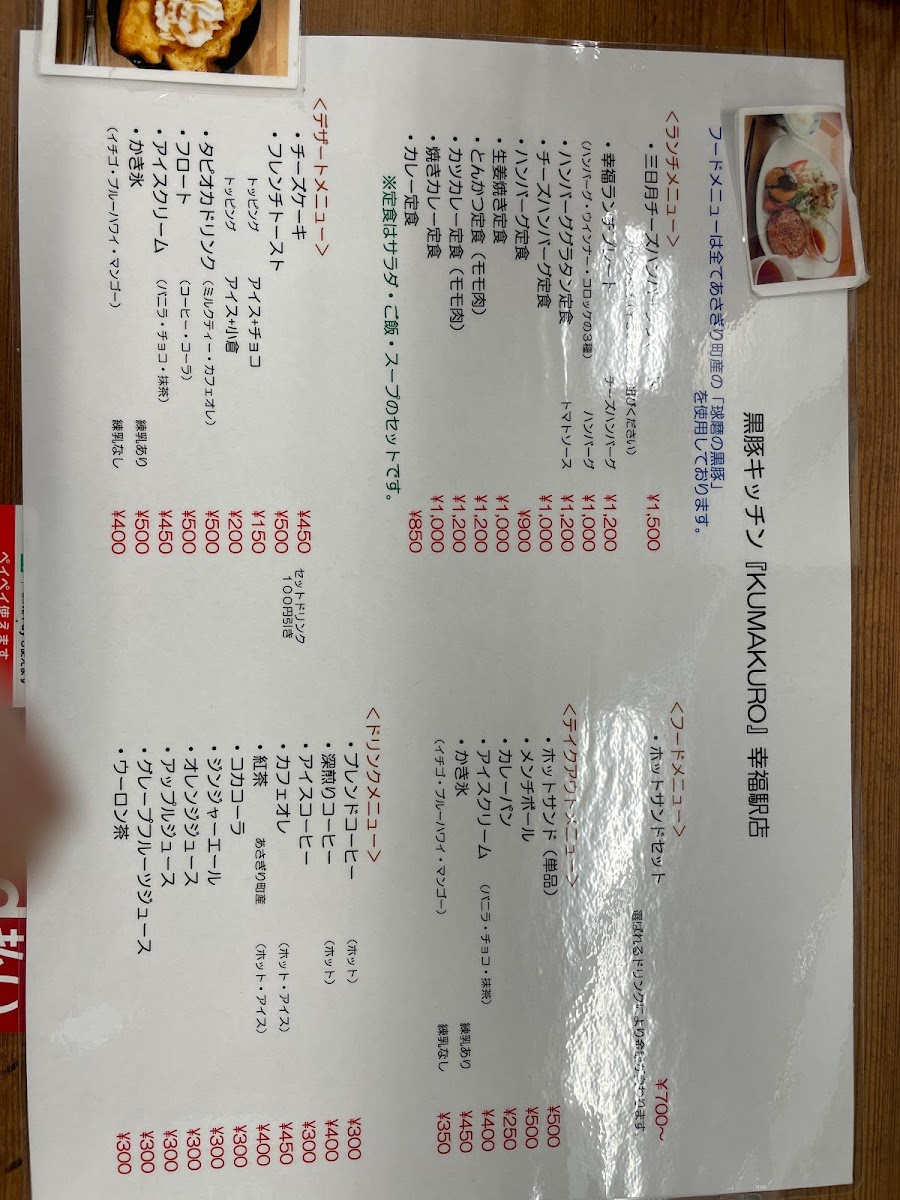 黒豚キッチン『KUMAKURO』幸福駅店
フードメニューは全てあさぎり町産の「球磨の黒豚」
を使用しております。
<ランチメニュー>
・三日月チーズハンバ ¥1,500
選びください)
・幸福ランチプレート チーズハンバーグ ¥1,200
(ハンバーグ・ウインナー・コロッケの3種) ハンバーグ ¥1,000
・ハンバーググラタン定食 トマトソース ¥1,200
・チーズハンバーグ定食 ¥1,000
・ハンバーグ定食 ¥900
・生姜焼き定食 ¥1,000
・とんかつ定食(モモ肉) ¥1,200
・カツカレー定食(モモ肉) ¥1,200
・焼きカレー定食 ¥1,000
・カレー定食 ¥850
※定食はサラダ・ご飯・スープのセットです。
<デザートメニュー>
・チーズケーキ ¥450
・フレンチトースト ¥500
セットドリンク
100円引き
トッピング アイス+チョコ ¥150
トッピング アイス+小倉 ¥200
・タピオカドリンク(ミルクティー・カフェオレ) ¥500
・フロート (コーヒー・コーラ) ¥500
・アイスクリーム (バニラ・チョコ・抹茶) ¥450
・かき氷 練乳あり ¥500
(イチゴ・ブルーハワイ・マンゴー) 練乳なし ¥400
<フードメニュー>
・ホットサンドセット ¥700〜
選ばれるドリンクにより金額がかわります
<テイクアウトメニュー>
・ホットサンド(単品) ¥500
・メンチボール ¥500
・カレーパン ¥250
・アイスクリーム (バニラ・チョコ・抹茶) ¥400
・かき氷 練乳あり ¥450
(イチゴ・ブルーハワイ・マンゴー) 練乳なし ¥350
<ドリンクメニュー>
・ブレンドコーヒー (ホット) ¥300
・深煎りコーヒー (ホット) ¥400
・アイスコーヒー ¥300
・カフェオレ (ホット・アイス) ¥450
・紅茶 あさぎり町産 (ホット・アイス) ¥400
・コカコーラ ¥300
・ジンジャーエール ¥300
・オレンジジュース ¥300
・アップルジュース ¥300
・グレープフルーツジュース ¥300
・ウーロン茶 ¥300
ペイペイ使えます
d払い